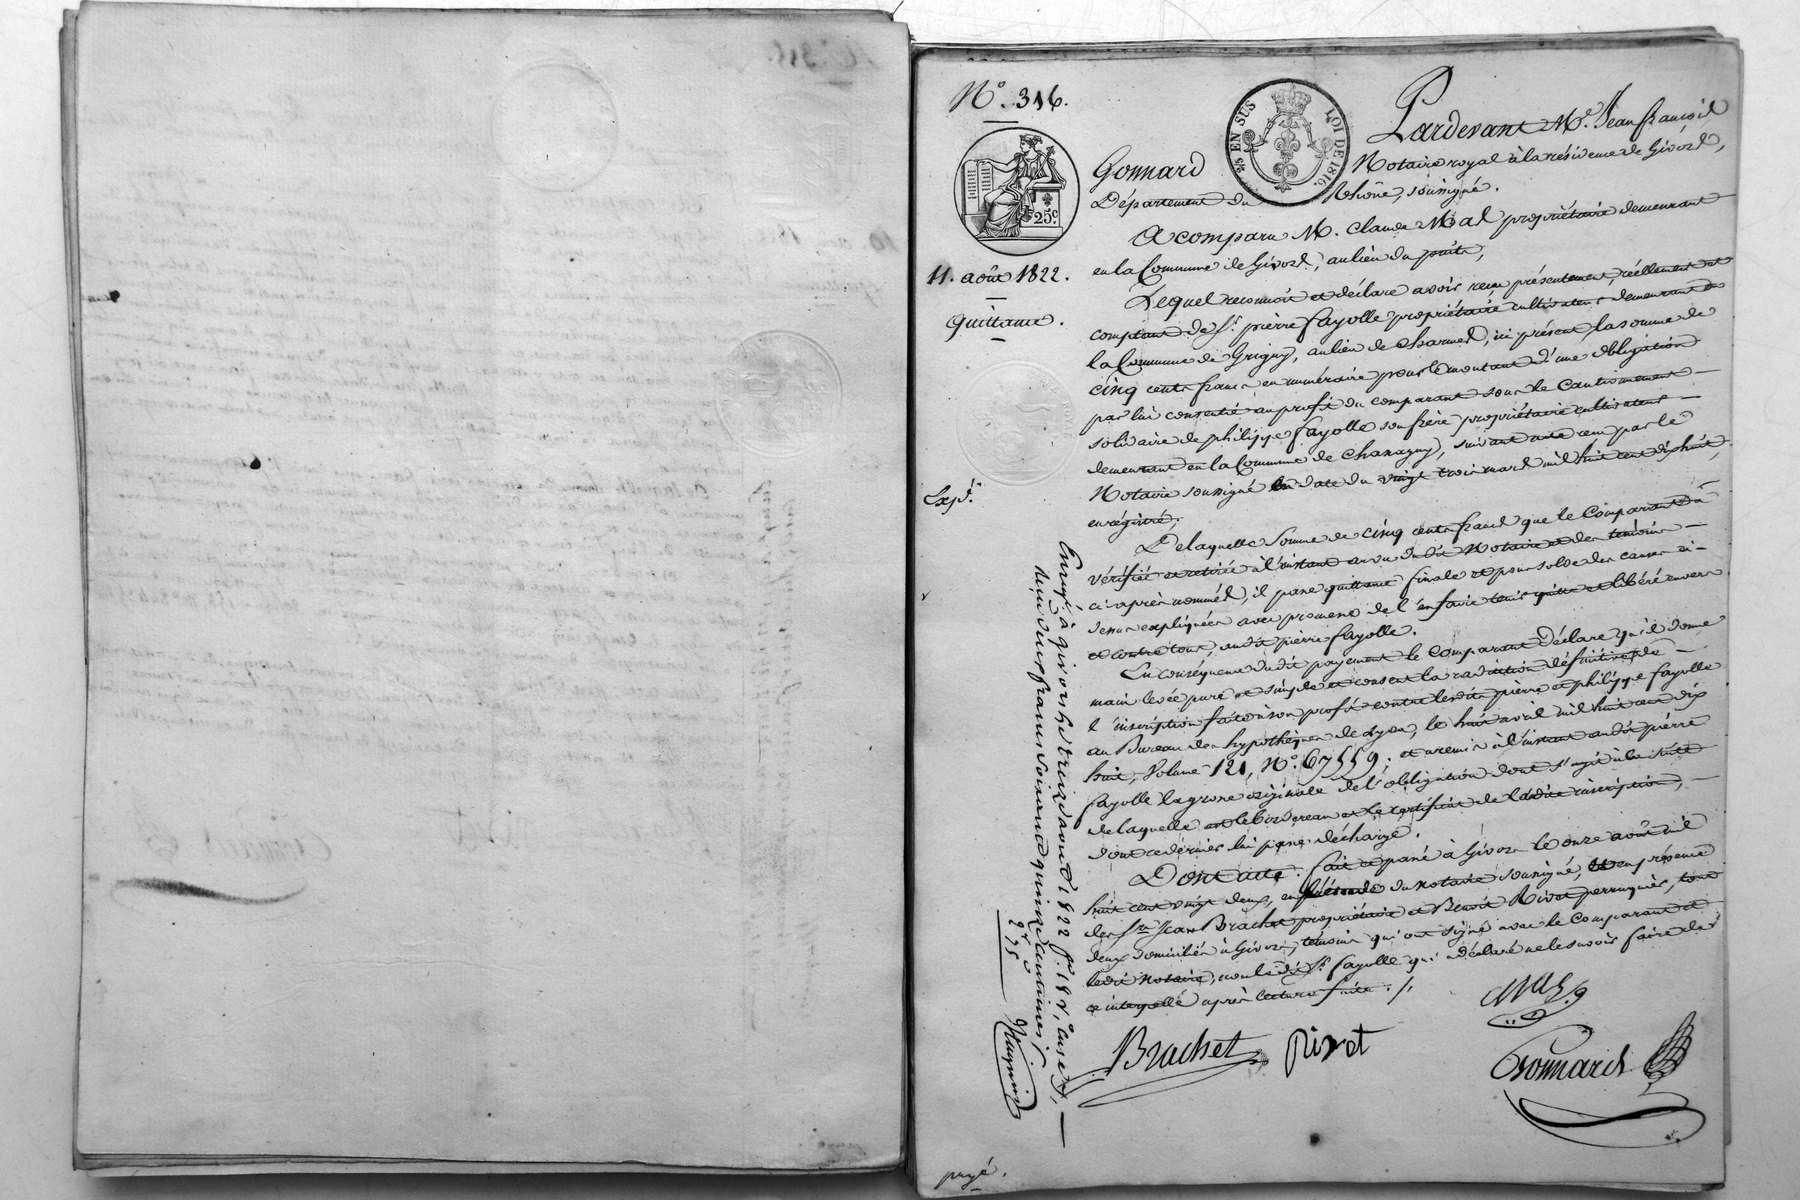 N.° 316.
2/5 EN SUS LOI DE 1816.
25c
11. août 1822.
Quittance.
Exp.d
Pardevant M.e Jean françois
Gonnard Notaire royal à la résidence de Givors,
Département du Rhône, soussigné.
A comparu M. Claude Mal propriétaire demeurant
en la Commune de Givors, au lieu du puits,
Lequel reconnoit et déclare avoir reçu présentement, réellement et
comptant de S.r pierre fayolle propriétaire cultivateur demeurant en
la Commune de Grigny, au lieu de Charmes, ici présent, la somme de
cinq cents francs en numéraire pour le montant d'une obligation
par lui consentie au profit du comparant sous le cautionnement
solidaire de philippe fayolle son frère propriétaire cultivateur
demeurant en la Commune de Chassagny, suivant acte reçu par le
Notaire soussigné en date du vingt trois mars mil huit cent dix huit,
enrégistré;
De laquelle somme de cinq cents francs que le Comparant a
vérifiée et retirée à l'instant au vu du dit Notaire et des témoins
ci après nommés, il passe quittance finale et pour solde des causes ci-
dessus expliquées avec promesse de l'en faire tenir quitte et libéré envers
et contre tous, audit pierre fayolle.
En conséquence dudit payement le comparant déclare qu'il donne
main levée pure et simple et consent la radiation définitive de
l'inscription faite à son profit contre lesdits pierre et philippe fayolle
au Bureau des hypothèques de Lyon, le huit avril mil huit cent dix
huit, Volume 121, N.° 67559; et a remis à l'instant audit pierre
fayolle la grosse originale de l'obligation dont s'agit à la suite
de laquelle est le bordereau et le certificat de ladite inscription,
dont ce dernier lui passe décharge.
Dont acte. fait et passé à Givors le onze août mil
huit cent vingt deux, en l'étude du notaire soussigné, et en présence
des s.rs Jean Brachet propriétaire et Benoit Rivat perruquier, tous
deux domiciliés à Givors, témoins qui ont signé avec le Comparant et
ledit Notaire, non ledit S.r fayolle qui a déclaré ne le savoir faire de
ce interpellé après lecture faite./.
Mal
Brachet Rivat Gonnard
Enregé à givors le treize août 1822 f.° 18 v.° Case 7,
reçu deux francs soixante quinze centimes
2 75
payé.